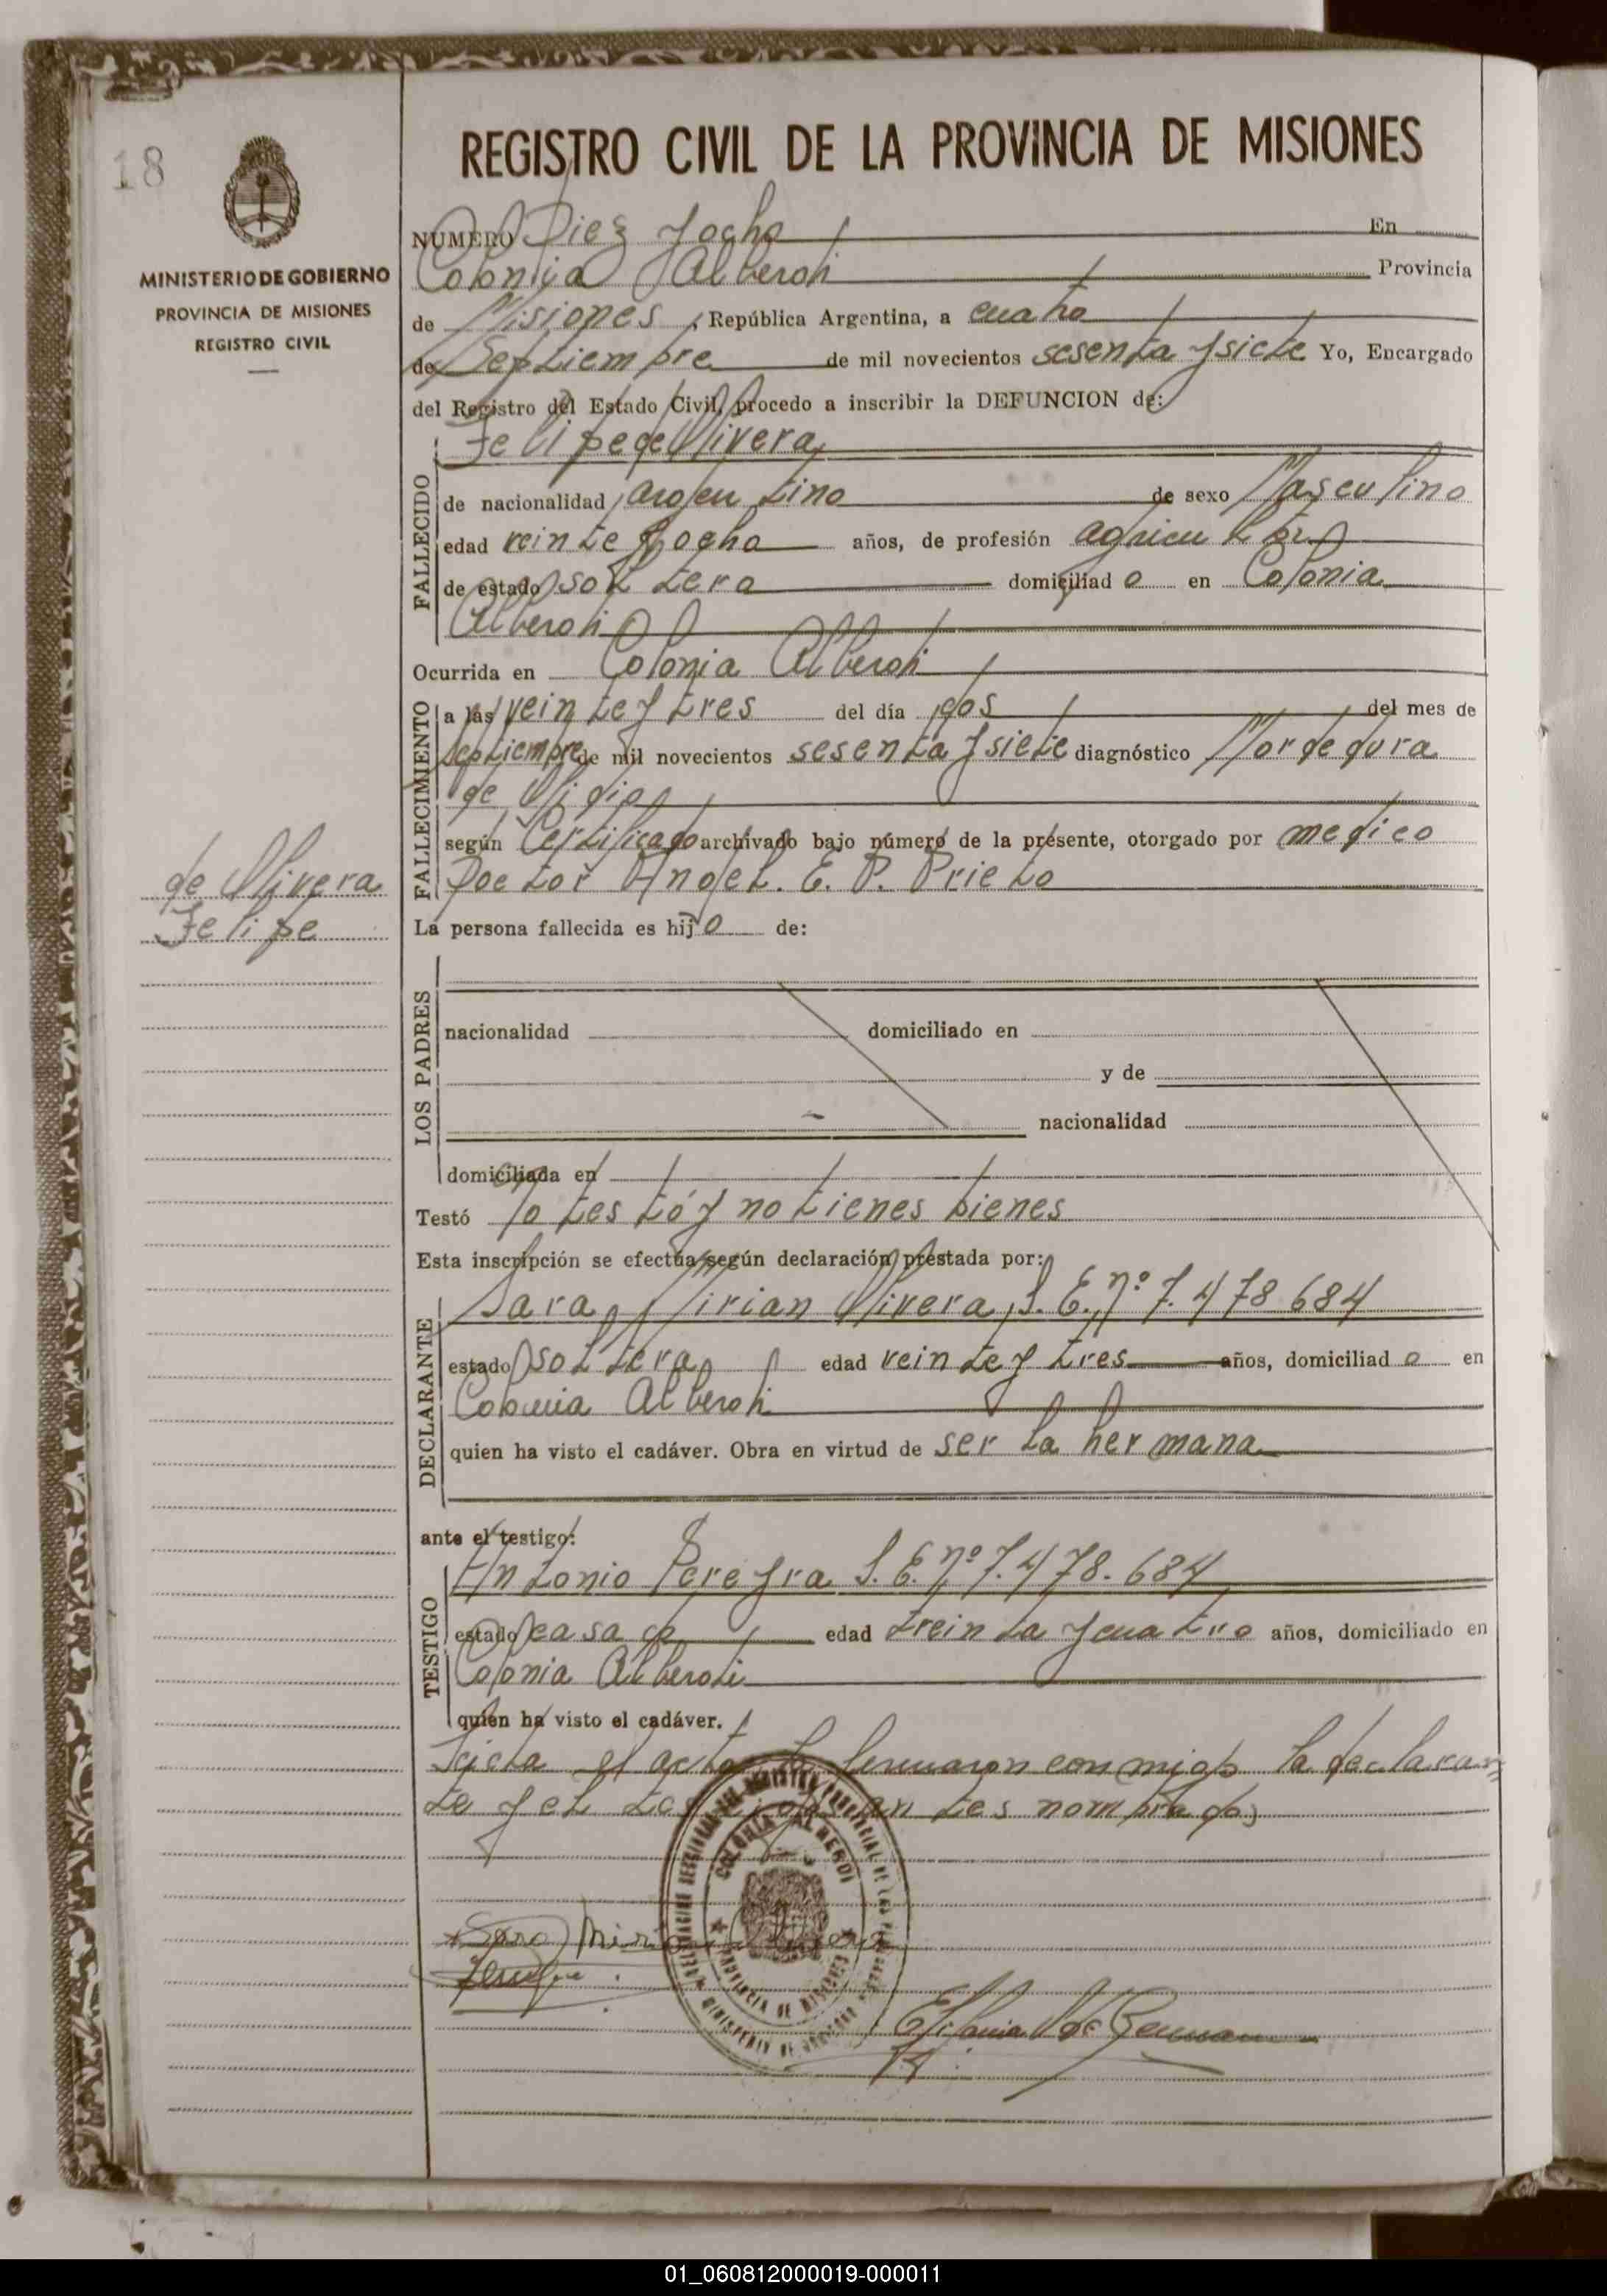 18
MINISTERIO DE GOBIERNO
PROVINCIA DE MISIONES
REGISTRO CIVIL
de Olivera
Felipe
REGISTRO CIVIL DE LA PROVINCIA DE MISIONES
NUMERO Diez y ocho En
Colonia Alberdi Provincia
de Misiones, República Argentina, a cuatro
de Septiembre de mil novecientos sesenta y siete Yo, Encargado
del Registro del Estado Civil, procedo a inscribir la DEFUNCION de:
Felipe de Olivera
FALLECIDO
de nacionalidad argentino de sexo Masculino
edad veinte y ocho años, de profesión agricultor
de estado soltero domiciliado en Colonia
Alberdi
Ocurrida en Colonia Alberdi
FALLECIMIENTO
a las veinte y tres del día dos del mes de
Septiembre de mil novecientos sesenta y siete diagnóstico Mordedura
de
según Certificado archivado bajo número de la presente, otorgado por medico
Doctor Angel. E. P. Prieto
La persona fallecida es hijo de:
LOS PADRES
nacionalidad domiciliado en
y de
nacionalidad
domiciliada en
Testó No testó y no tienes bienes
Esta inscripción se efectúa según declaración prestada por:
DECLARANTE
Sara Mirian Olivera, L. E. nº 7.478 684
estado soltera edad veinte y tres años, domiciliado en
Colonia Alberdi
quien ha visto el cadáver. Obra en virtud de ser la hermana
ante el testigo:
TESTIGO
Antonio Pereyra L. E. nº 7.478.684
estado casado edad treinta y cuatro años, domiciliado en
Colonia Alberdi
quien ha visto el cadáver.
el acta la firmaron conmigo la declaran
te y el testigo antes nombrados
COLONIA ALBERDI
PROVINCIA DE MISIONES
Sara Mirian Olivera
01_060812000019-000011